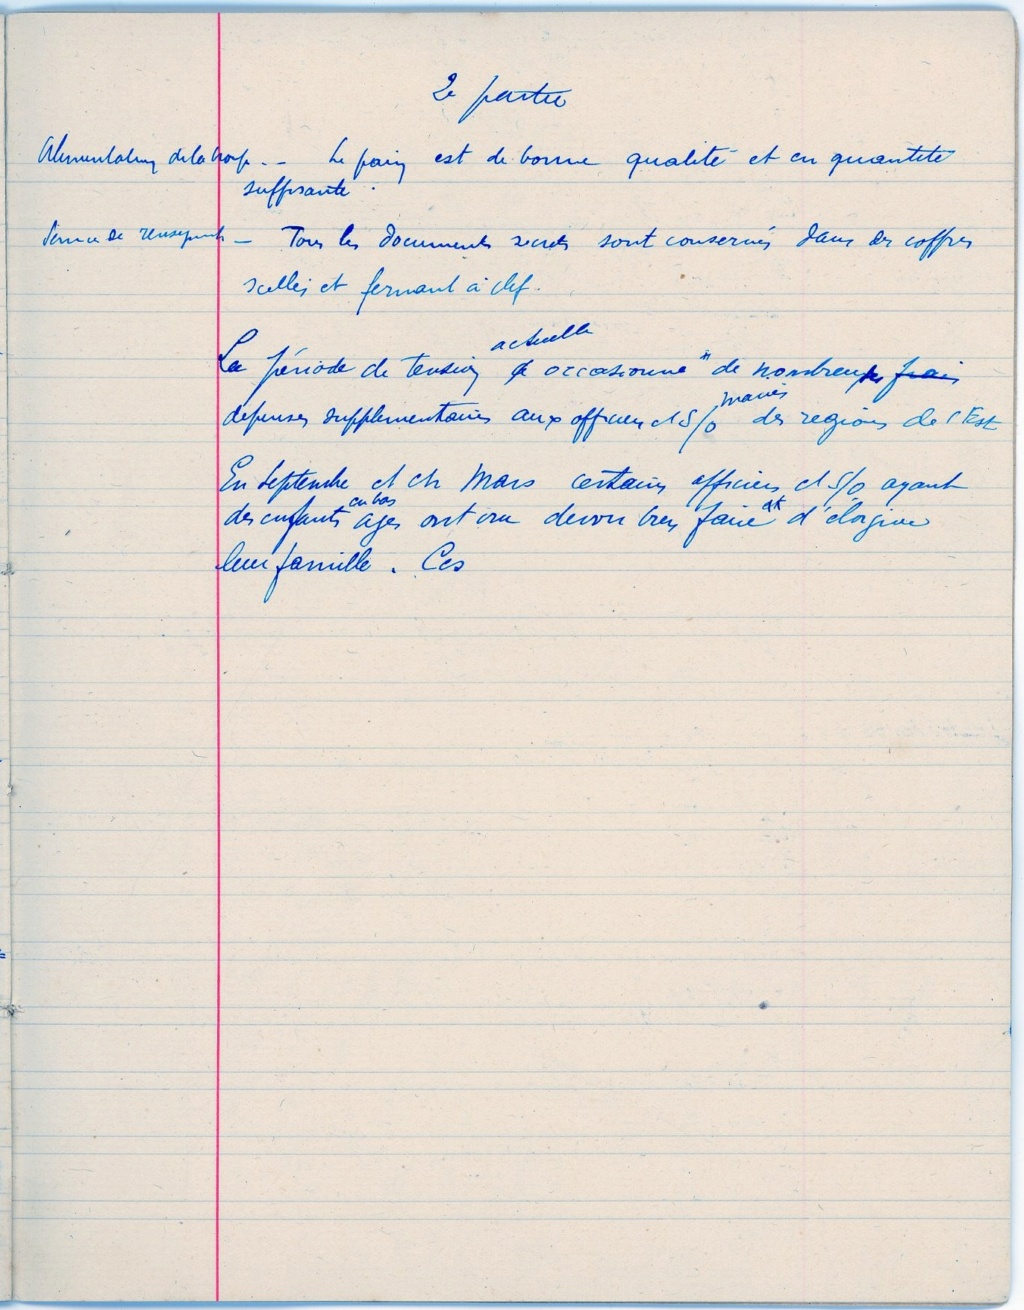 2e partie
Alimentation de la troupe. - Le pain est de bonne qualité et en quantité
suffisante.
Service de renseignements - Tous les documents secrets sont conservés dans des coffres
scellés et fermant à clef.
actuelle
La période de tension a occasionné de nombreuses frais
mariés
dépenses supplémentaires aux officiers et S/O des régions de l'Est
En Septembre et en Mars certains officiers et S/O ayant
en bas
des enfants âges ont cru devoir bien faire d'éloigner
leur famille. Ces